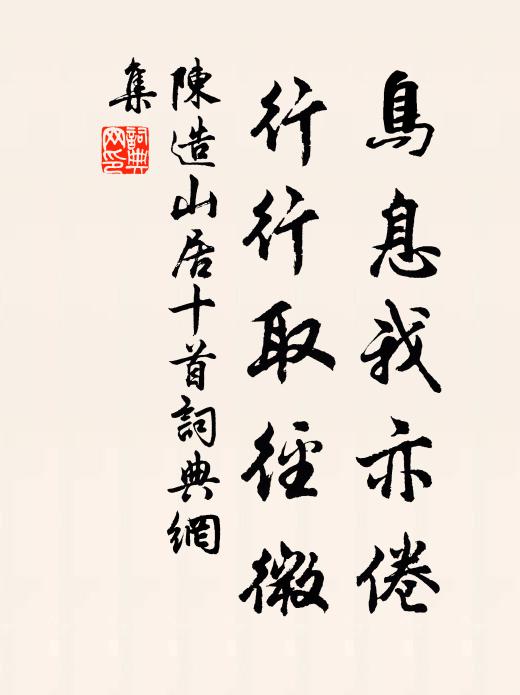 鳥息我亦倦
行行取徑微
陳造山居十首詞典網
集
詞典
网印